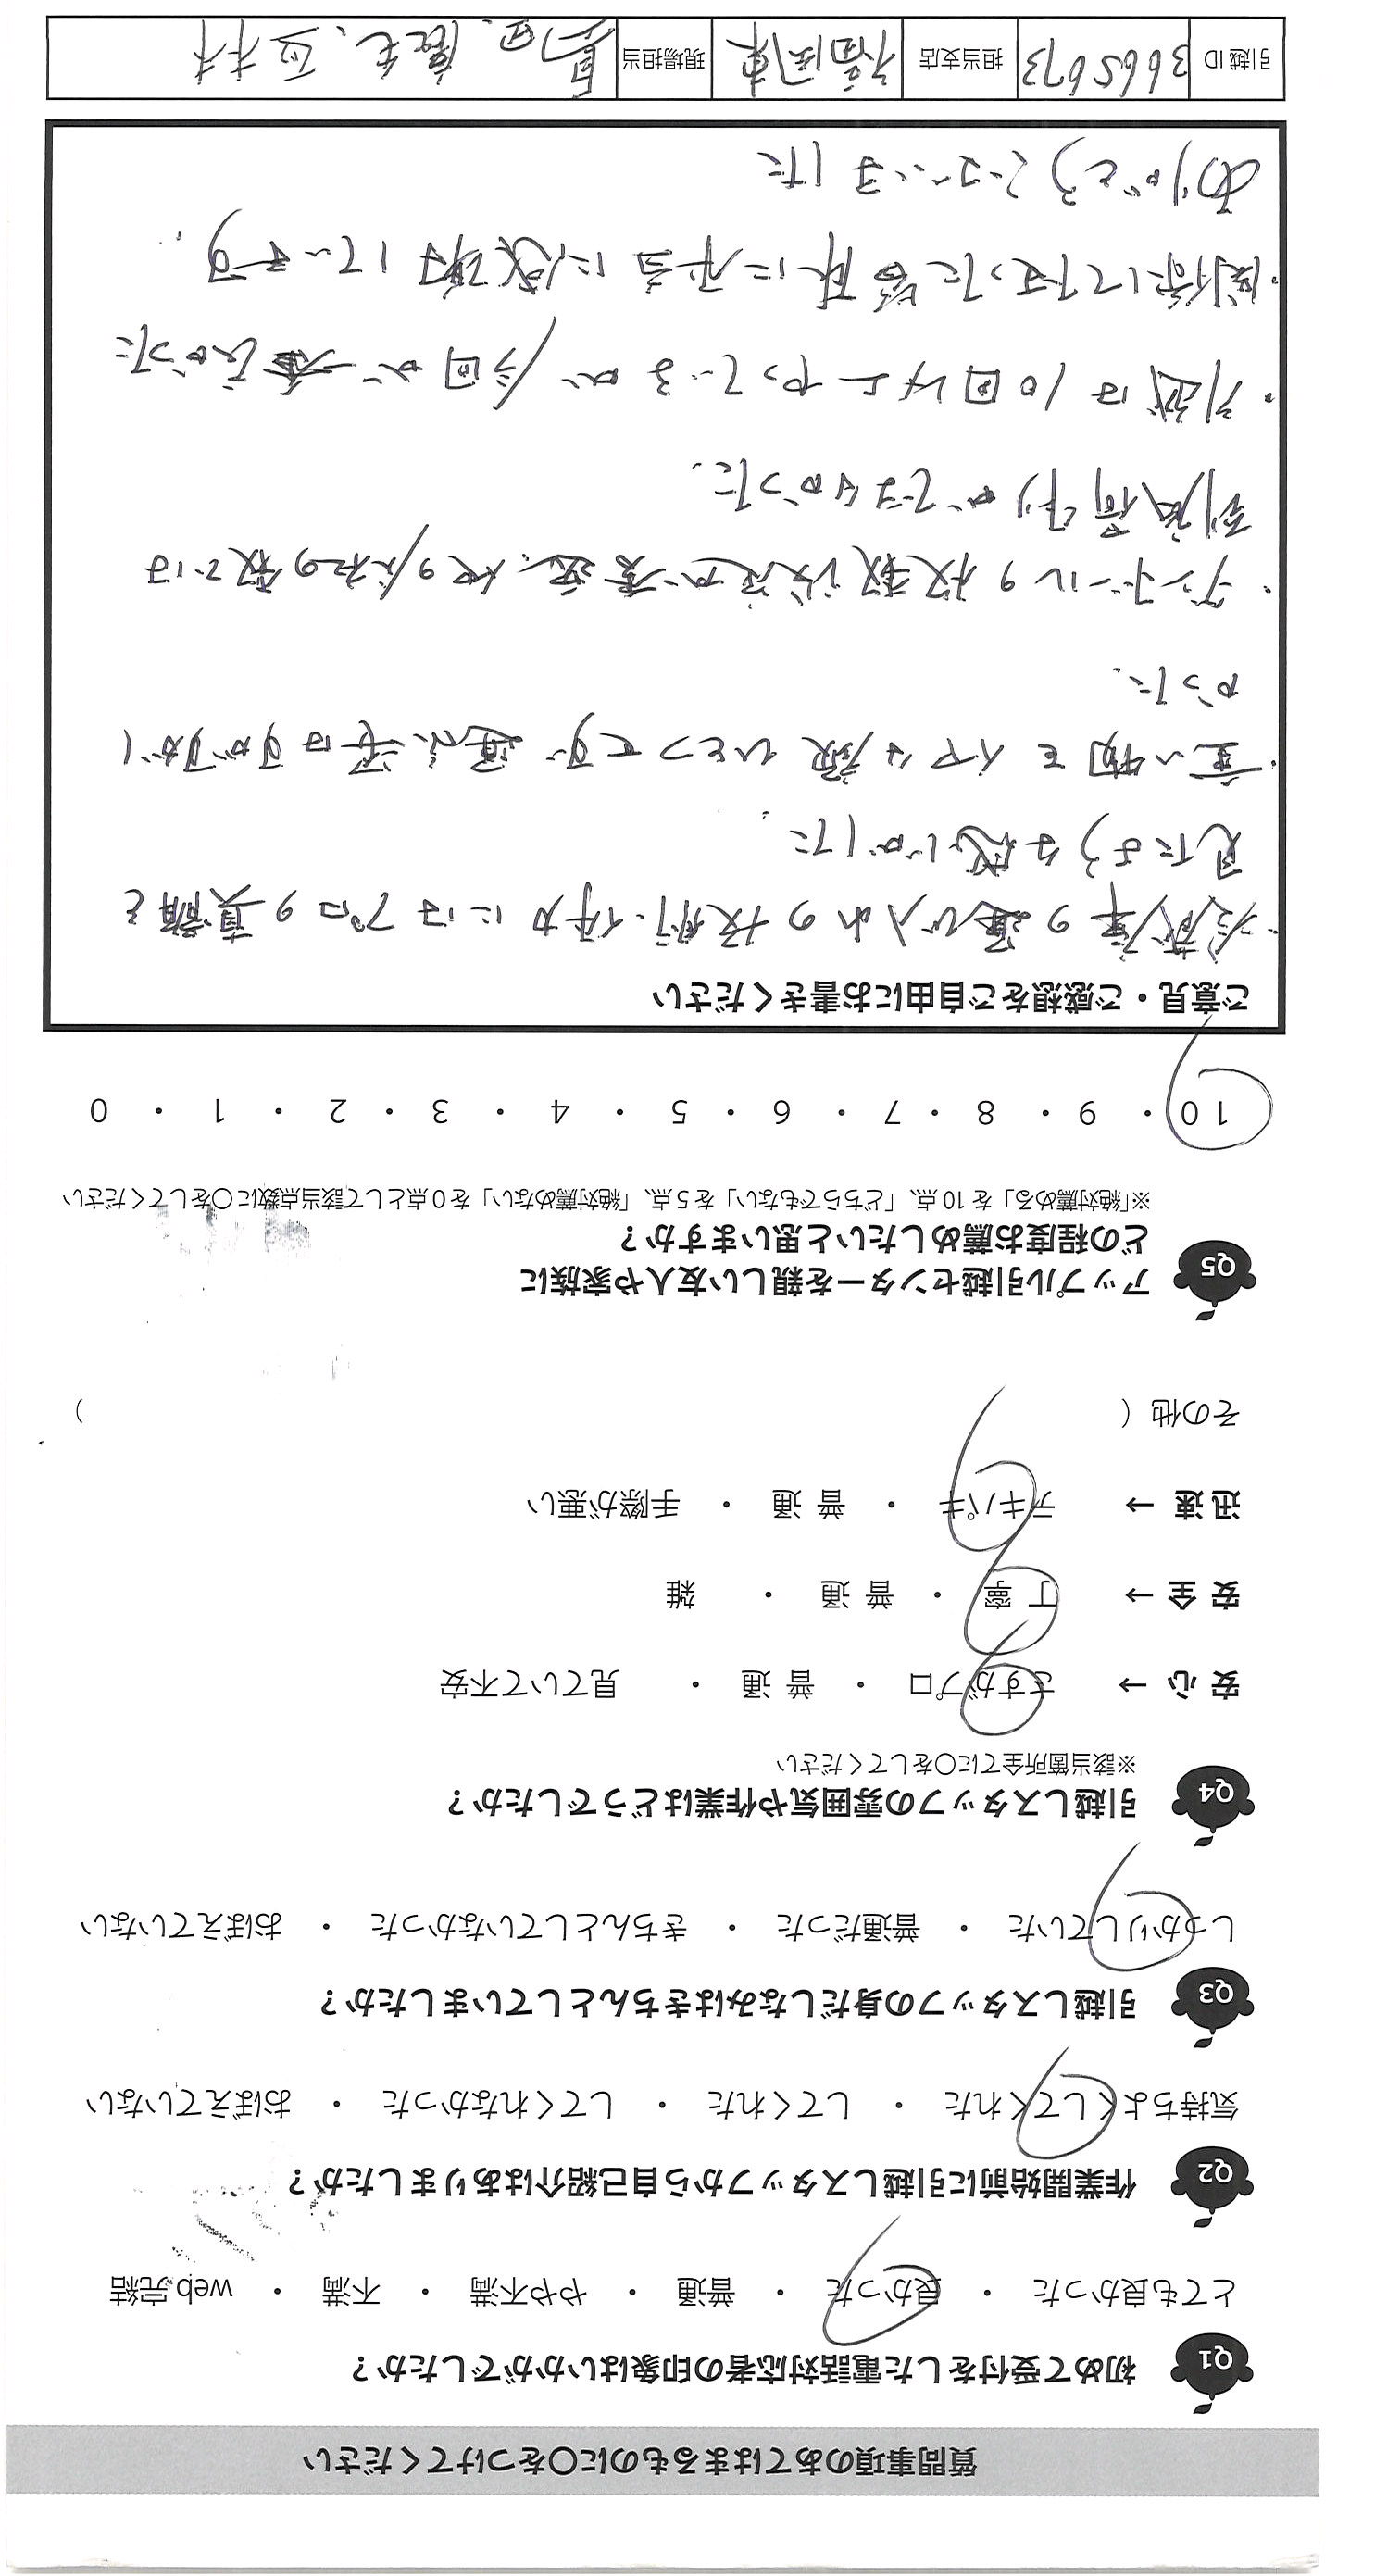 質問事項のあてはまるものに〇をつけてください
Q1 初めて受付をした電話対応者の印象はいかがでしたか？
とても良かった ・ 良かった ・ 普通 ・ やや不満 ・ 不満 ・ web完結
Q2 作業開始前に引越しスタッフから自己紹介はありましたか？
気持ちよくしてくれた ・ してくれた ・ してくれなかった ・ おぼえていない
Q3 引越しスタッフの身だしなみはきちんとしていましたか？
しっかりしていた ・ 普通だった ・ きちんとしていなかった ・ おぼえていない
Q4 引越しスタッフの雰囲気や作業はどうでしたか？
※該当箇所全てに〇をしてください
安心 → さすがプロ ・ 普通 ・ 見ていて不安
安全 → 丁寧 ・ 普通 ・ 雑
迅速 → テキパキ ・ 普通 ・ 手際が悪い
その他（ ）
Q5 アップル引越センターを親しい友人や家族に
どの程度お薦めしたいと思いますか？
※「絶対薦める」を10点、「どちらでもない」を5点、「絶対薦めない」を0点として該当点数に〇をしてください
10 ・ 9 ・ 8 ・ 7 ・ 6 ・ 5 ・ 4 ・ 3 ・ 2 ・ 1 ・ 0
ご意見・ご感想をご自由にお書きください
・冷蔵庫の運び入れの技術・体力にはプロの真髄を
見たような感じがした。
・重い物をイヤな顔ひとつせず運ぶ姿はすがすがし
かった。
・ダンボールの枚数設定が最適、他の会社の数では
到底荷作りができなかった。
・引越は10回以上やっているが今回が一番良かった
・関係して下さった皆様に本当に感謝しています。
ありがとうございました
引越ID 3665673 担当支店 福岡東 現場担当